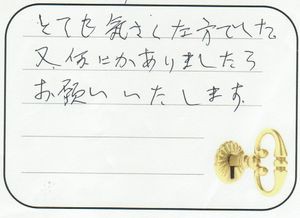 とても気さくな方でした。
又、何かありましたら
お願いいたします。